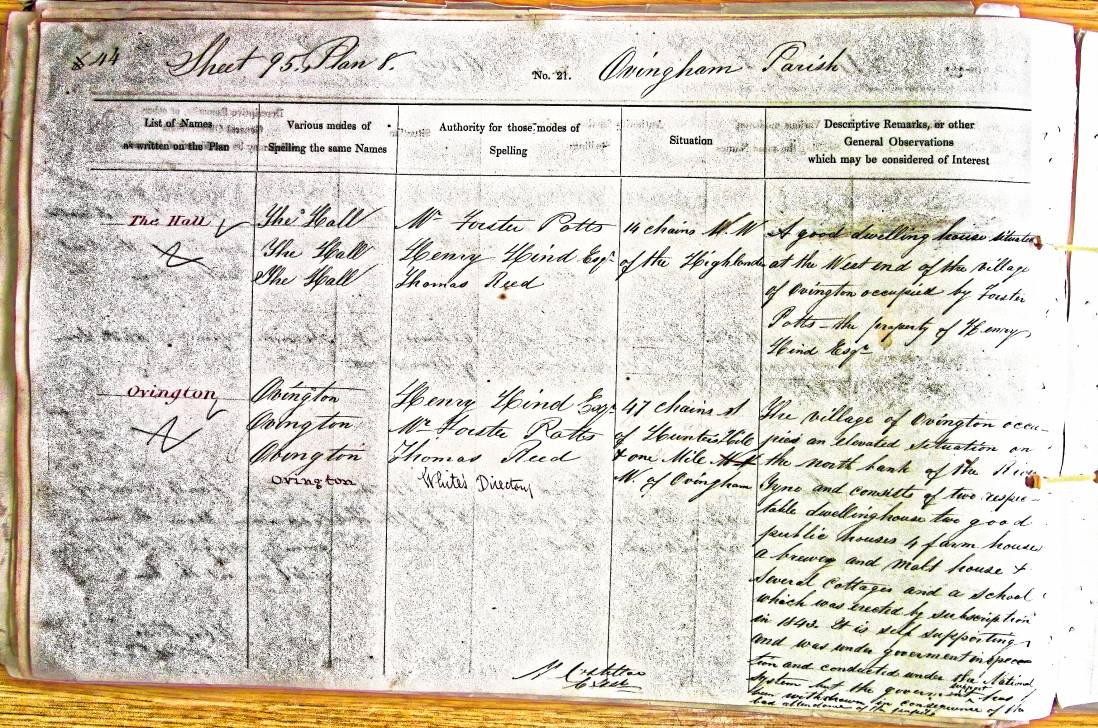 44 Sheet 95. Plan 8. No. 21. Ovingham Parish
List of Names
as written on the Plan
Various modes of
Spelling the same Names
Authority for those modes of
Spelling
Situation
Descriptive Remarks, or other
General Observations
which may be considered of Interest
The Hall
The Hall
The Hall
The Hall
Mr Forster Potts
Henry Hind Esqr
Thomas Reed
14 chains N.W
of the Highlander
A good dwelling house situate
at the West end of the village
of Ovington occupied by Forster
Potts - the property of Henry
Hind Esqr
Ovington
Ovington
Ovington
Ovington
Ovington
Henry Hind Esqr
Mr Forster Potts
Thomas Reed
White's Directory
47 chains
of Hunters Hill
& one Mile
W. of Ovingham
The village of Ovington occu-
pies an elevated situation on
the north bank of the River
Tyne and consists of two respec-
table dwellinghouse two good
public houses 4 farm houses
a brewery and Malt house &
several Cottages and a school
which was erected by subscription
in 1843. It is self supporting
and was under goverment inspec
tion and conducted under the National
System but the goverment support has
been withdrawn in consequence of the
bad attendance of the pupils